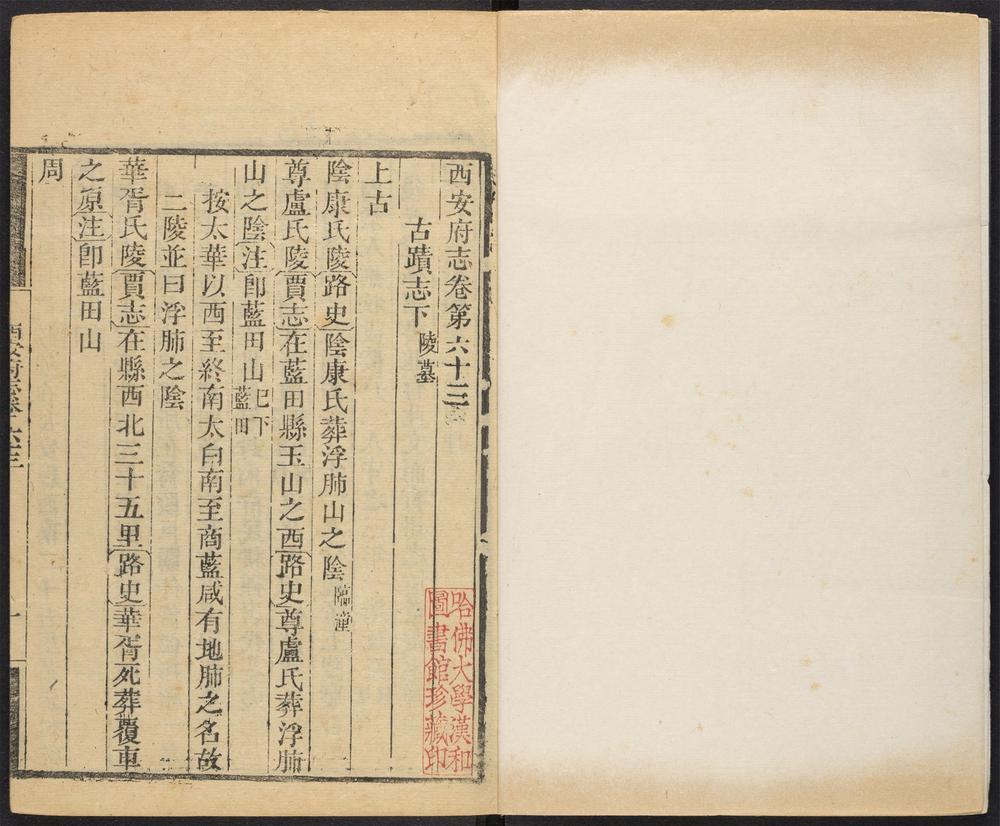 西安府志卷第六十三
古蹟志下 陵墓
上古
陰康氏陵路史陰康氏葬浮肺山之陰 臨潼
尊盧氏陵賈志在藍田縣玉山之西路史尊盧氏葬浮肺
山之陰注卽藍田山 已下藍田
按太華以西至終南太白南至商藍咸有地肺之名故
二陵並曰浮肺之陰
華胥氏陵賈志在縣西北三十五里路史華胥死葬覆車
之原注卽藍田山
周
西安府志卷六十三
一
哈佛大學漢和
圖書館珍藏印